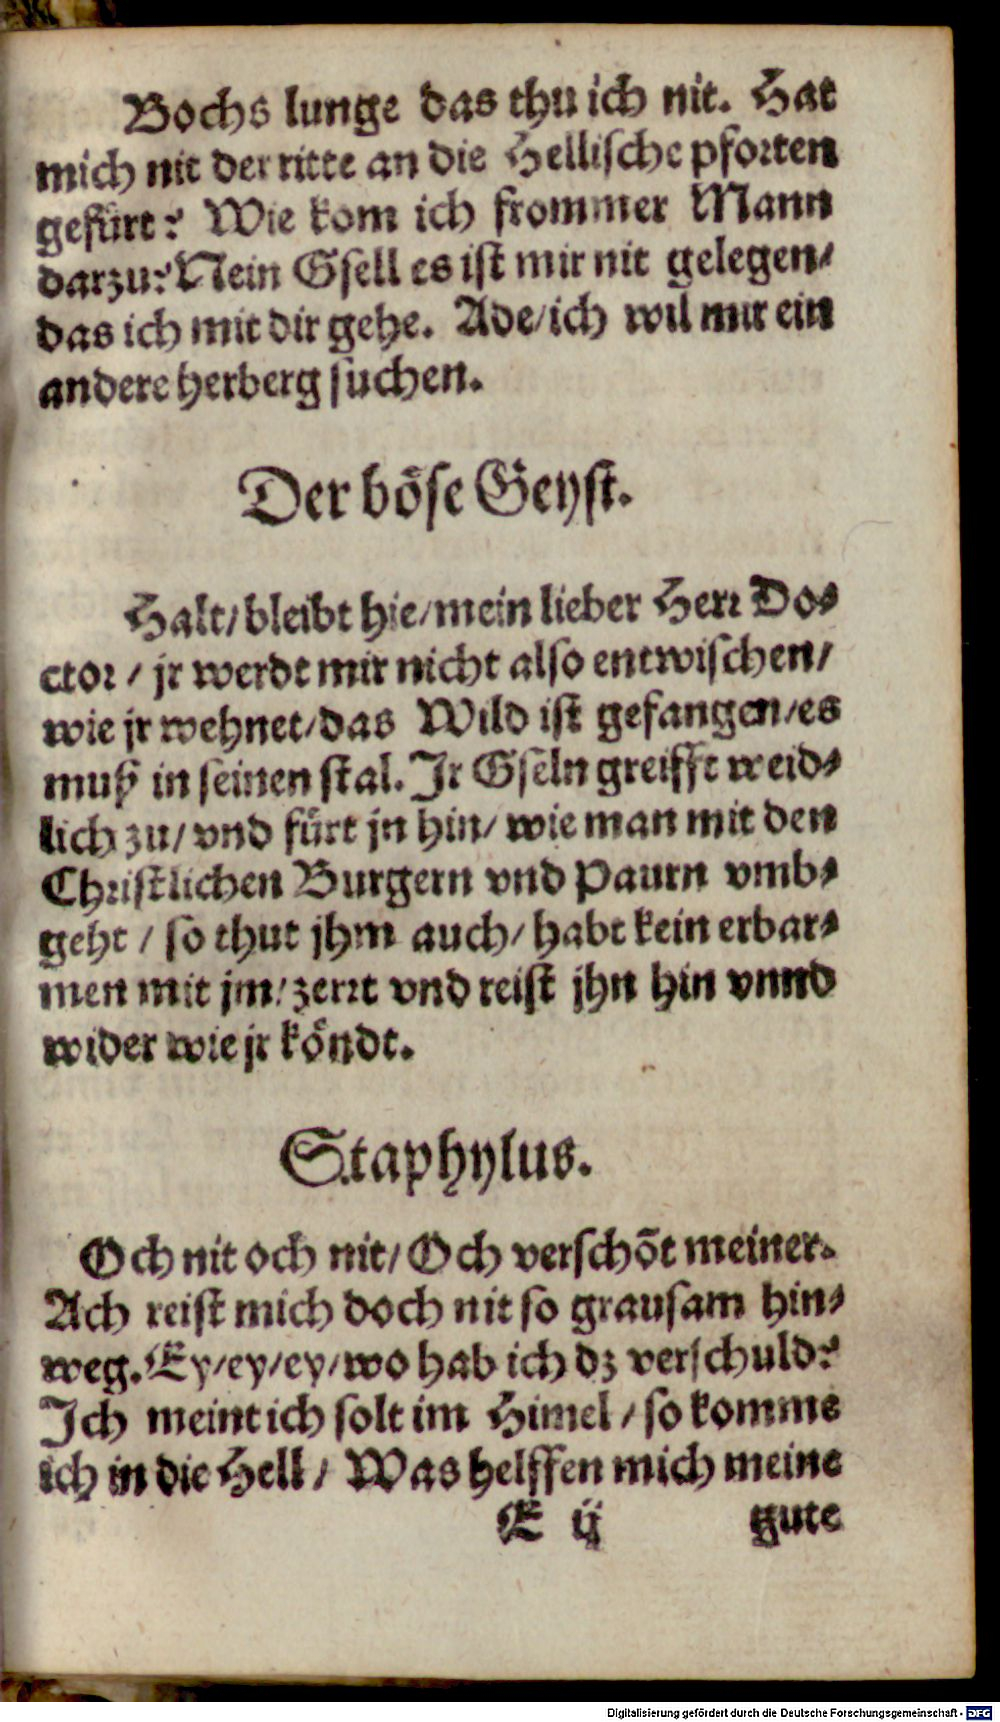 Bochs lunge das thu ich nit. Hat
mich nit der ritte an die Hellische pforten
gefürt? Wie kom ich frommer Mann
darzu? Nein Gsell es ist mir nit gelegen/
das ich mit dir gehe. Ade/ich wil mir ein
andere herberg suchen.
Der böse Geyst.
Halt/bleibt hie/mein lieber Herr Do-
ctor / jr werdt mir nicht also entwischen/
wie jr wehnet/das Wild ist gefangen/es
muß in seinen stal. Jr Gseln greifft weid-
lich zu/ vnd fürt jn hin/ wie man mit den
Christlichen Burgern vnd Paurn vmb-
geht / so thut jhm auch/ habt kein erbar-
men mit jm/ zerrt vnd reist jhn hin vnnd
wider wie jr köndt.
Staphylus.
Och nit och nit/ Och verschõt meiner.
Ach reist mich doch nit so grausam hin-
weg. Ey/ey/ey/wo hab ich dz verschuld?
Ich meint ich solt im Himel / so komme
ich in die Hell / Was helffen mich meine
E ij gute
Digitalisierung gefördert durch die Deutsche Forschungsgemeinschaft - DFG